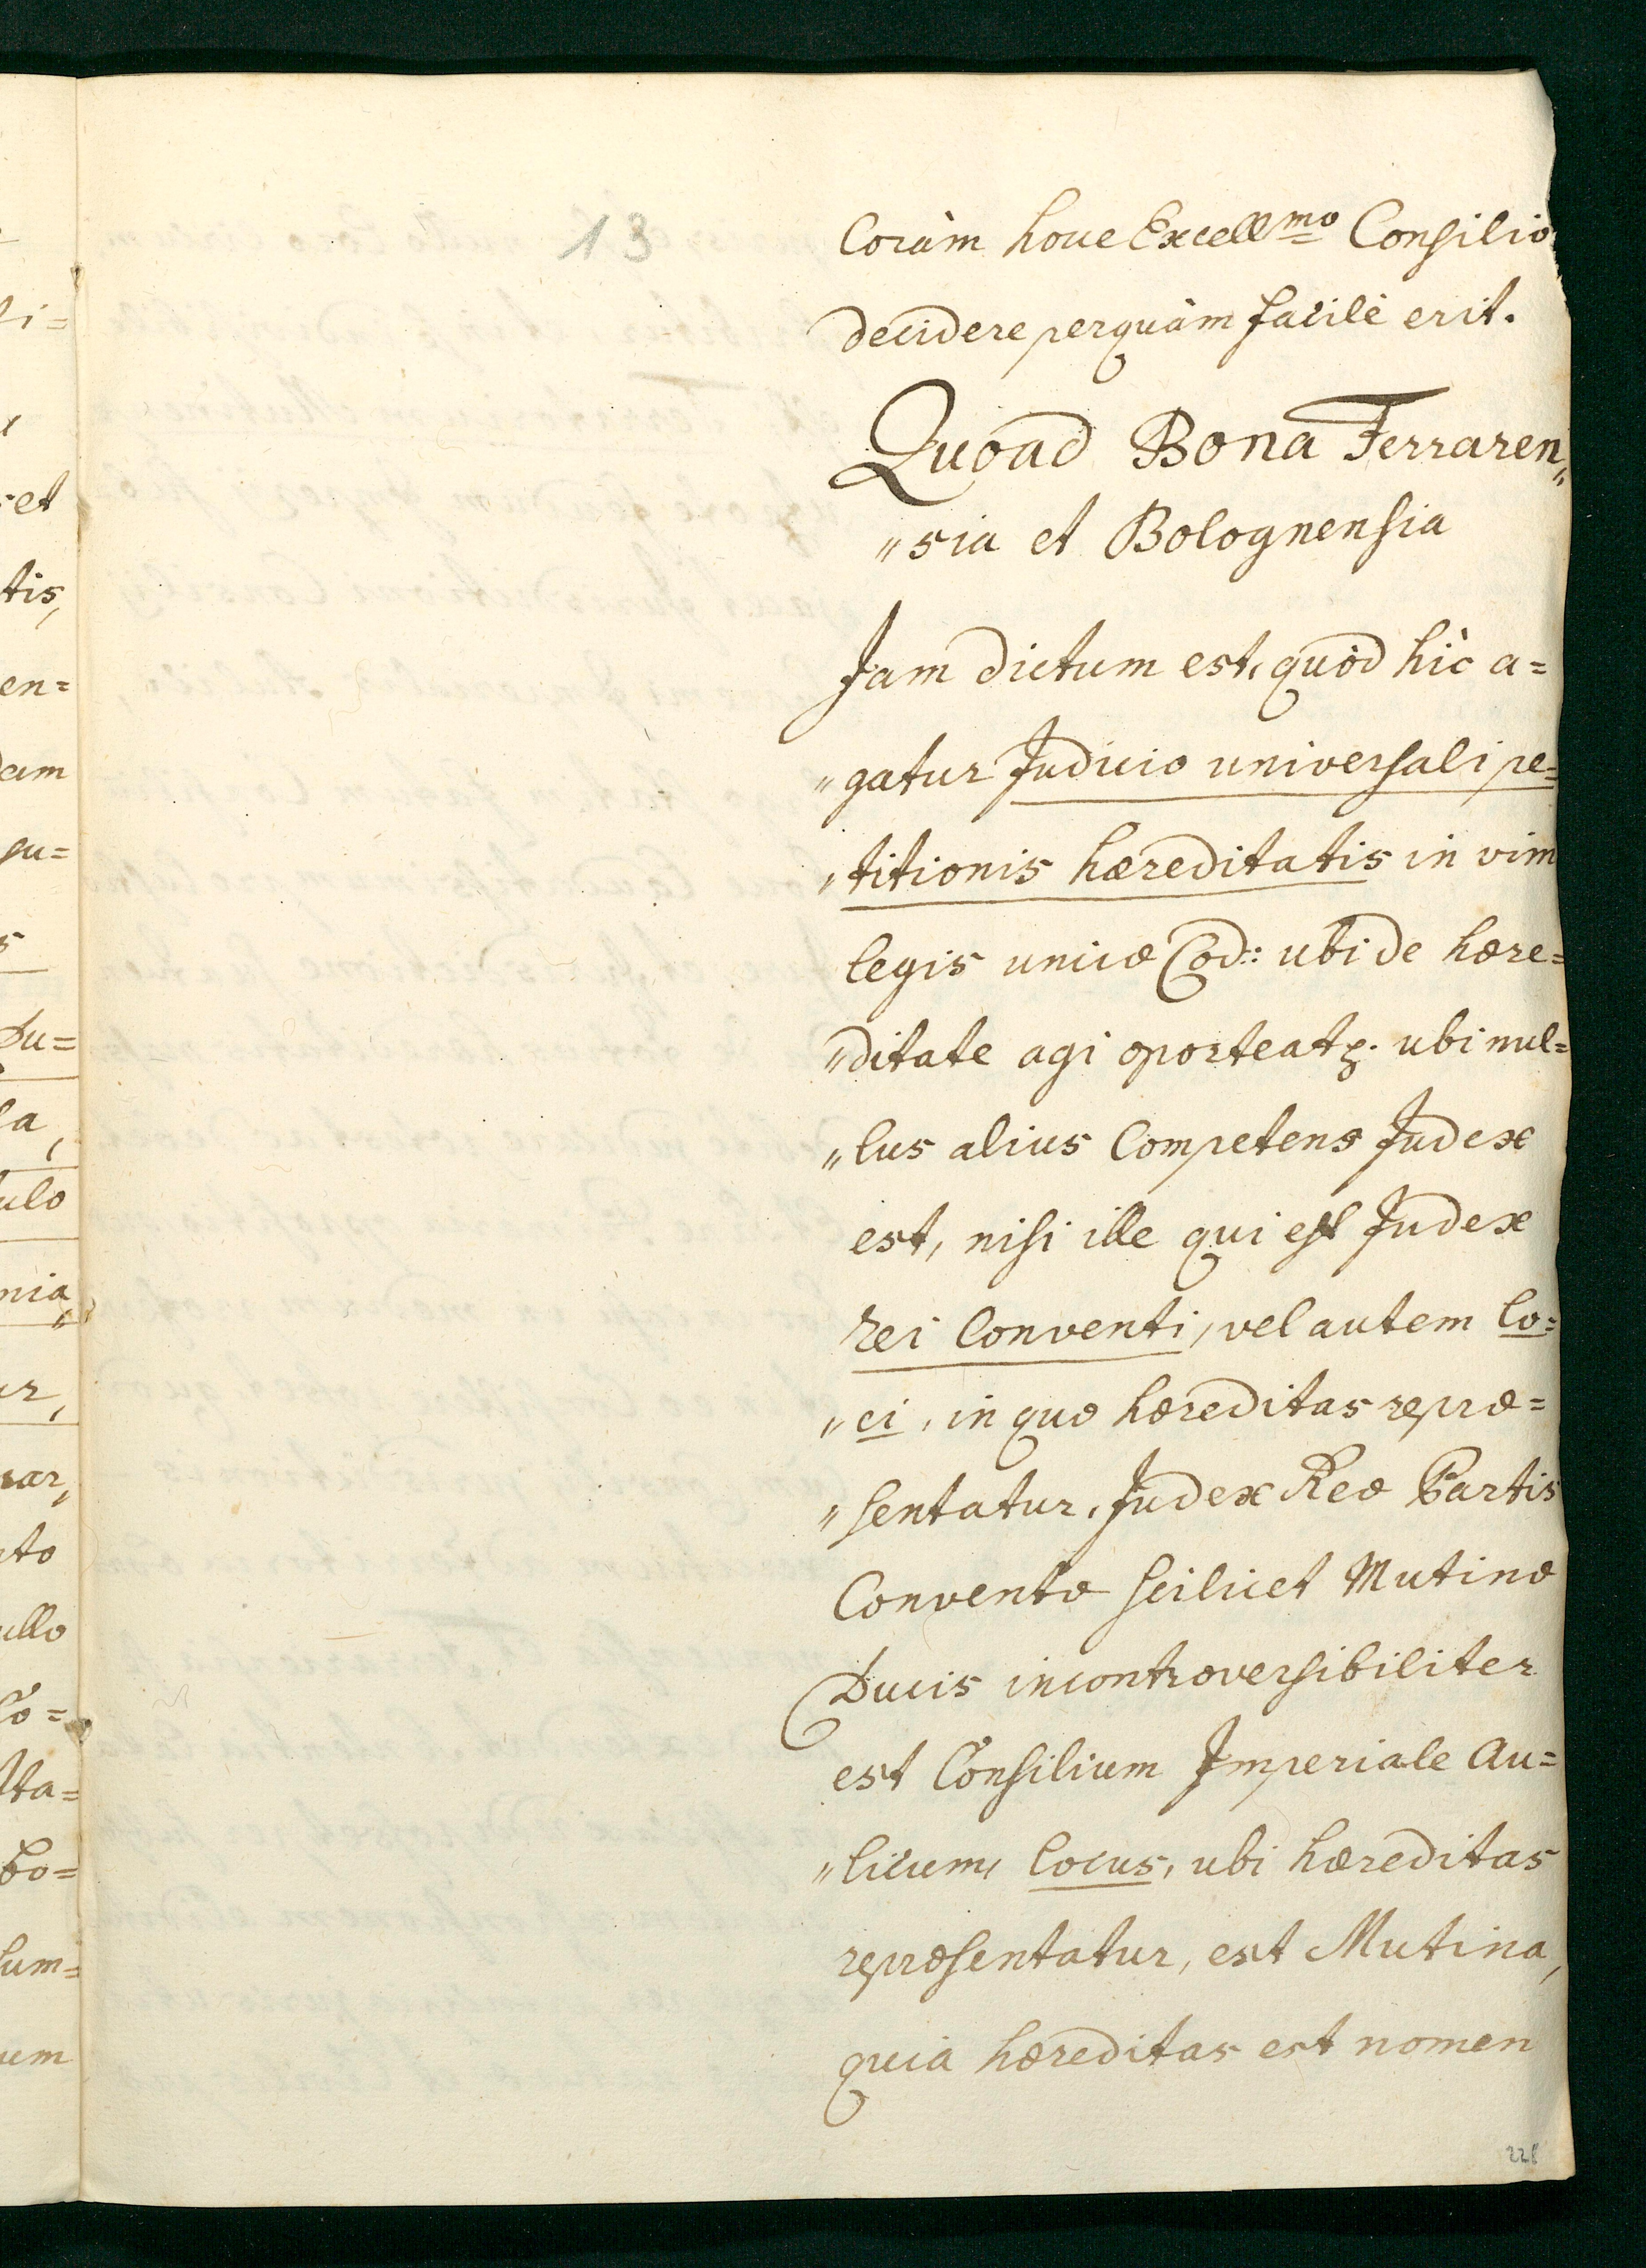 13
Coràm houe Excell.mo Consilio
decidere perquàm facilè erit.
Quoad Bona Ferraren„
„sia et Bolognensia
Jam dictum est, quòd hìc a=
„gatur Judicio universali pe=
„titionis hæreditatis in vim
legis unicæ Cod: ubi de hære=
„ditate agi oporteat p. ubi nul=
„lus alius Competens Judex
est, nisi ille qui est Judex
rei Conventi, vel autem lo=
„ci, in quo hæreditas repræ=
„sentatur, Judex Reæ Partis
Conventæ scilicet Mutinæ
Ducis incontroversibiliter
est Consilium Imperiale Au=
„licum, locus, ubi hæreditas
repræsentatur, est Mutina,
quia hæreditas est nomen
228
et
tis,
en=
dam
su=
s
Du=
la,
ulo
nia„
ur,
rar,
nto
ullo
Co=
Ita=
bo=
sum=
uem